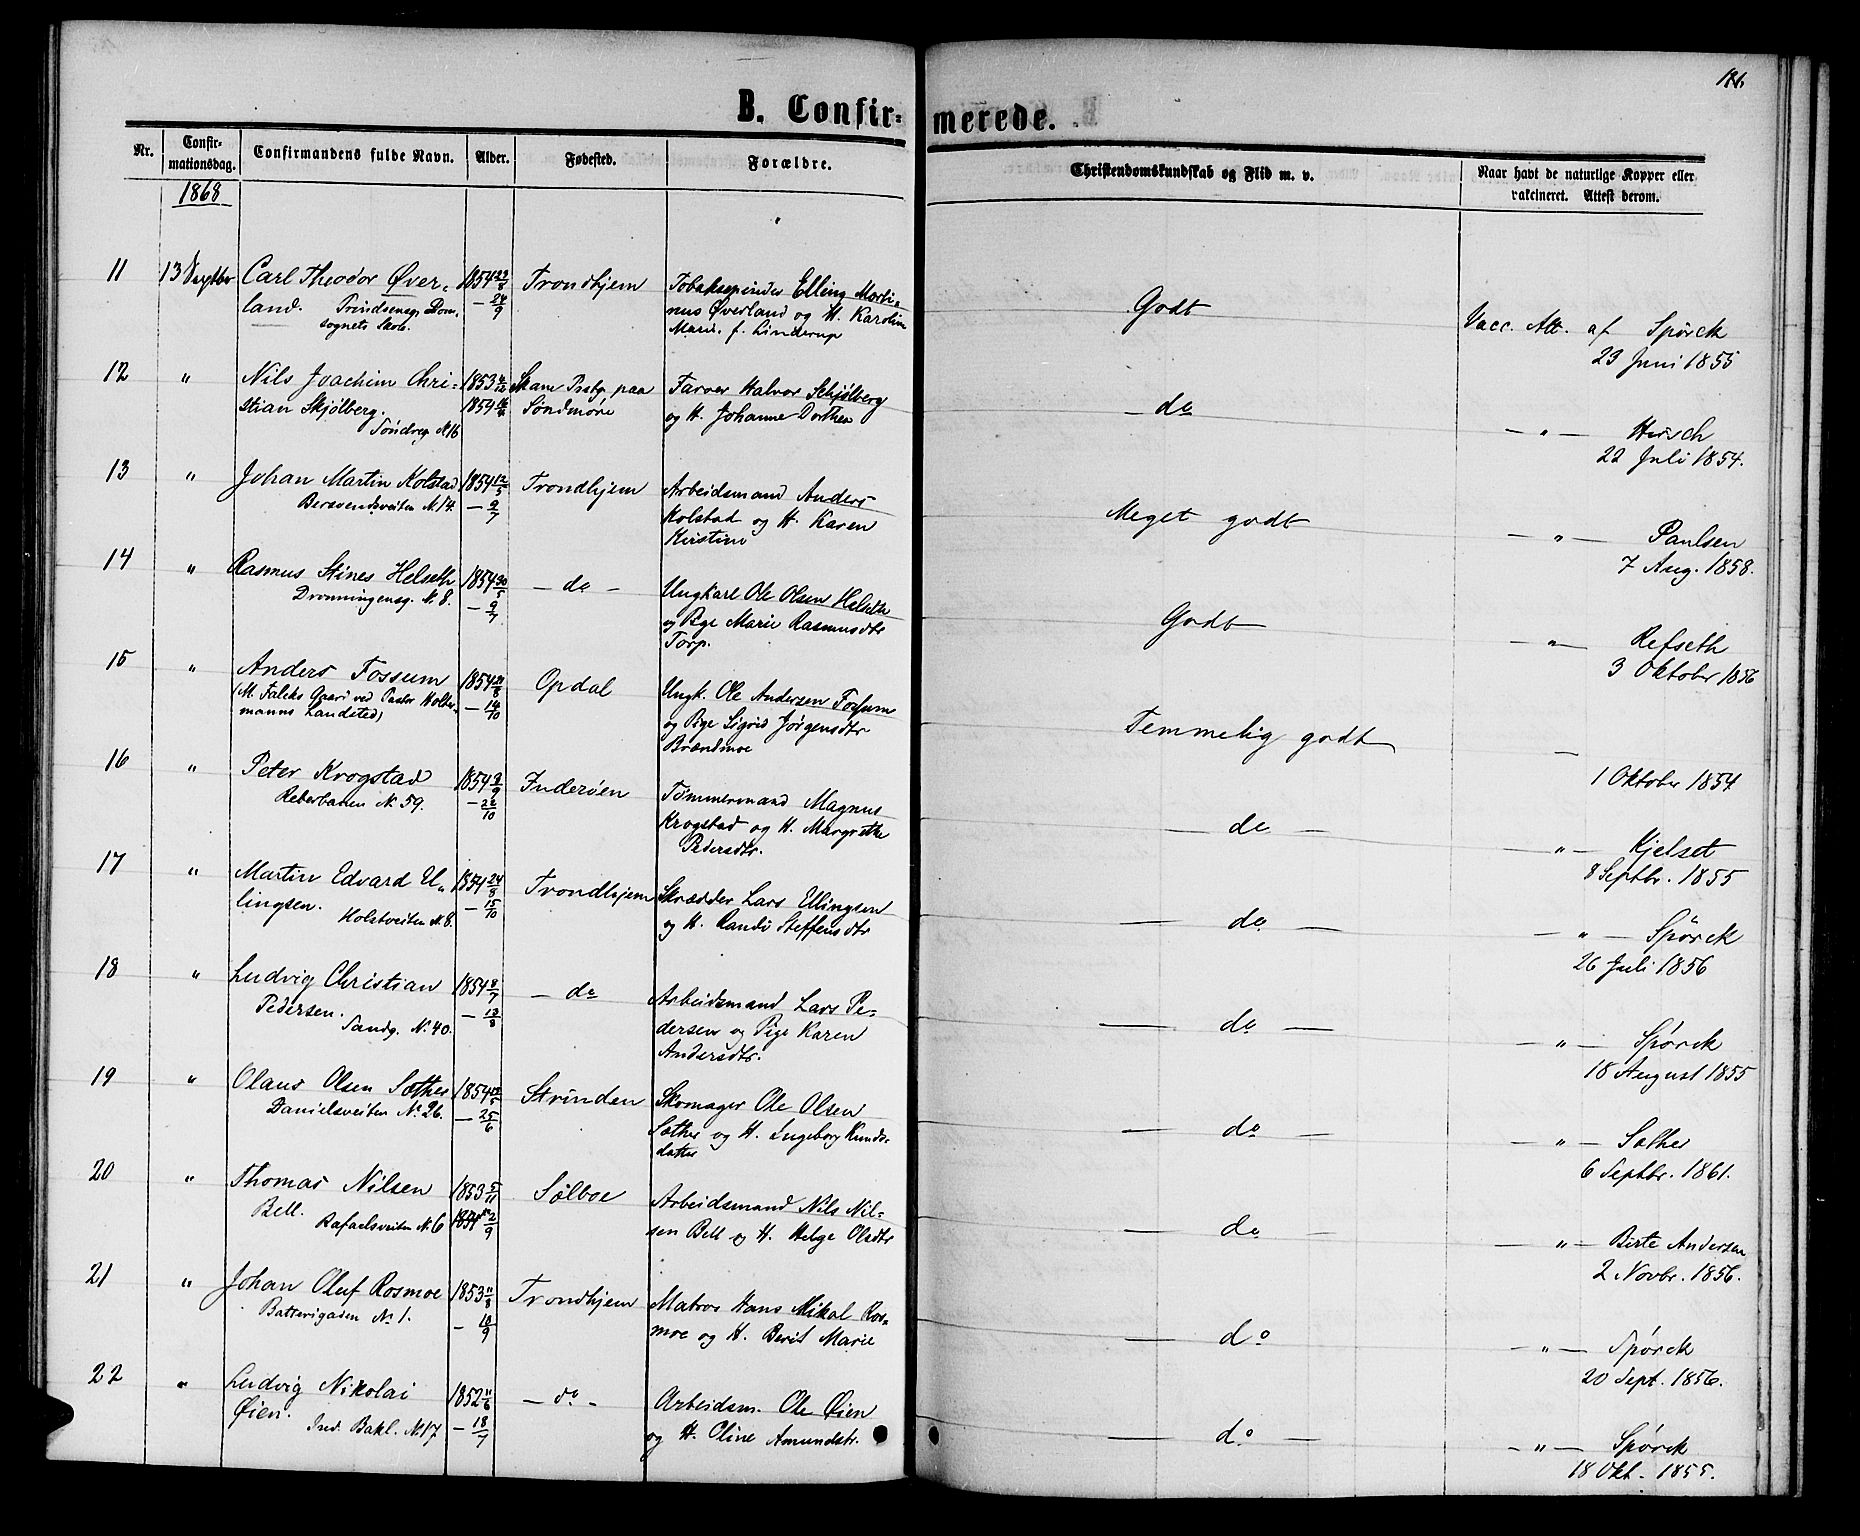 B. Confir-
merede.
Nr.
Confir-
mationsdag.
Confirmandens fulde Navn.
Alder.
Fødested.
Forældre.
Christendomskundskab og Flid m. v.
Naar havt de naturlige Kopper eller
vakcineret. Attest derom.
1868
11 13 Septbr Carl Theodor Øver- 1854 23/8 Trondhjem Elling Marti-
land. Prindsensg. Dom- — 24/9 nus Øverland og H. Karolin
sognets Skole. Marie f. Linderup
Godt
Vacc. Att. af Spörck
23 Juni 1855
12 " Nils Joachim Chri- 1853 Prstg. paa Farver Halvor Schjølberg
stian Skjølberg. 1854 Søndmøre og H. Johanne Dorthea
Søndreg. N. 16
do
— " — Hirsch
22 Juli 1854.
13 " Johan Martin Kolstad 1854 12/5 Trondhjem Arbeidsmand Anders
Bersvendsveiten N. 14. — 9/7 Kolstad og H. Karen
Kirstine
Meget godt
— " — Paulsen
7 Aug. 1858.
14 " Rasmus Stines Helseth 1854 30/5 — do — Ungkarl Ole Olsen Helseth
Dronningensg. N. 8. — 9/7 og Pige Marie Rasmusdtr
Torp.
Godt
— " — Refseth
3 Oktober 1856
15 " Anders Fossum 1854 Opdal Ungk. Ole Andersen Fossum
(M. Falcks Gaard ved Pastor Holter- — 14/10 og Pige Sigrid Jørgensdtr
manns Landsted) Brændmoe
Temmelig godt
—
1 Oktober 1854
16 " Peter Krogstad 1854 9/9 Inderøen Tømmermand Magnus
Reberbanen N. 59. — 22/10 Krogstad og H. Margrethe
Pedersdtr.
— do —
— " — Kjelset
8 Septbr. 1855
17 " Martin Edvard El- 1854 24/8 Trondhjem Skrædder Lars Ellingsen
lingsen. Holstveiten N. 8. — 15/10 og H. Randi Steffensdtr
— do —
— " — Spörck
26 Juli 1856
18 " Ludvig Christian 1854 8/7 — do Arbeidsmand Lars Pe-
Pedersen. Sandg. N. 40. — 13/8 dersen og Pige Karen
Andersdtr.
— do —
— " — Spörck
18 August 1855
19 " Olaus Olsen Sæther 1854 Strinden Skomager Ole Olsen
Danielsveiten N. 26. — 25/6 Sæther og H. Ingeborg Knuds-
datter
— do —
— " — Sæther
6 Septbr. 1861.
20 " Thomas Nilsen 1853 5/11 Sælboe Arbeidsmand Nils Nil-
Bell. Rafaelsveiten N. 6 1854 2/9 sen Bell og H. Helge Olsdtr
— do —
— " — Birte Andersen
2 Novbr. 1856.
21 " Johan Oluf Rosmoe 1853 11/8 Trondhjem Matros Hans Mikal Ros-
Batterigaden N. 1. — 10/9 moe og H. Berit Marie
— do
— " — Spörck
20 Sept. 1856.
22 " Ludvig Nikolai 1852 11/6 — do — Arbeidsm. Ole Øien
Øien. Ind. Bakl. N. 17 — 18/7 og H. Oline Amundstr.
— do —
— " — Spörck
18 Okt. 1855.